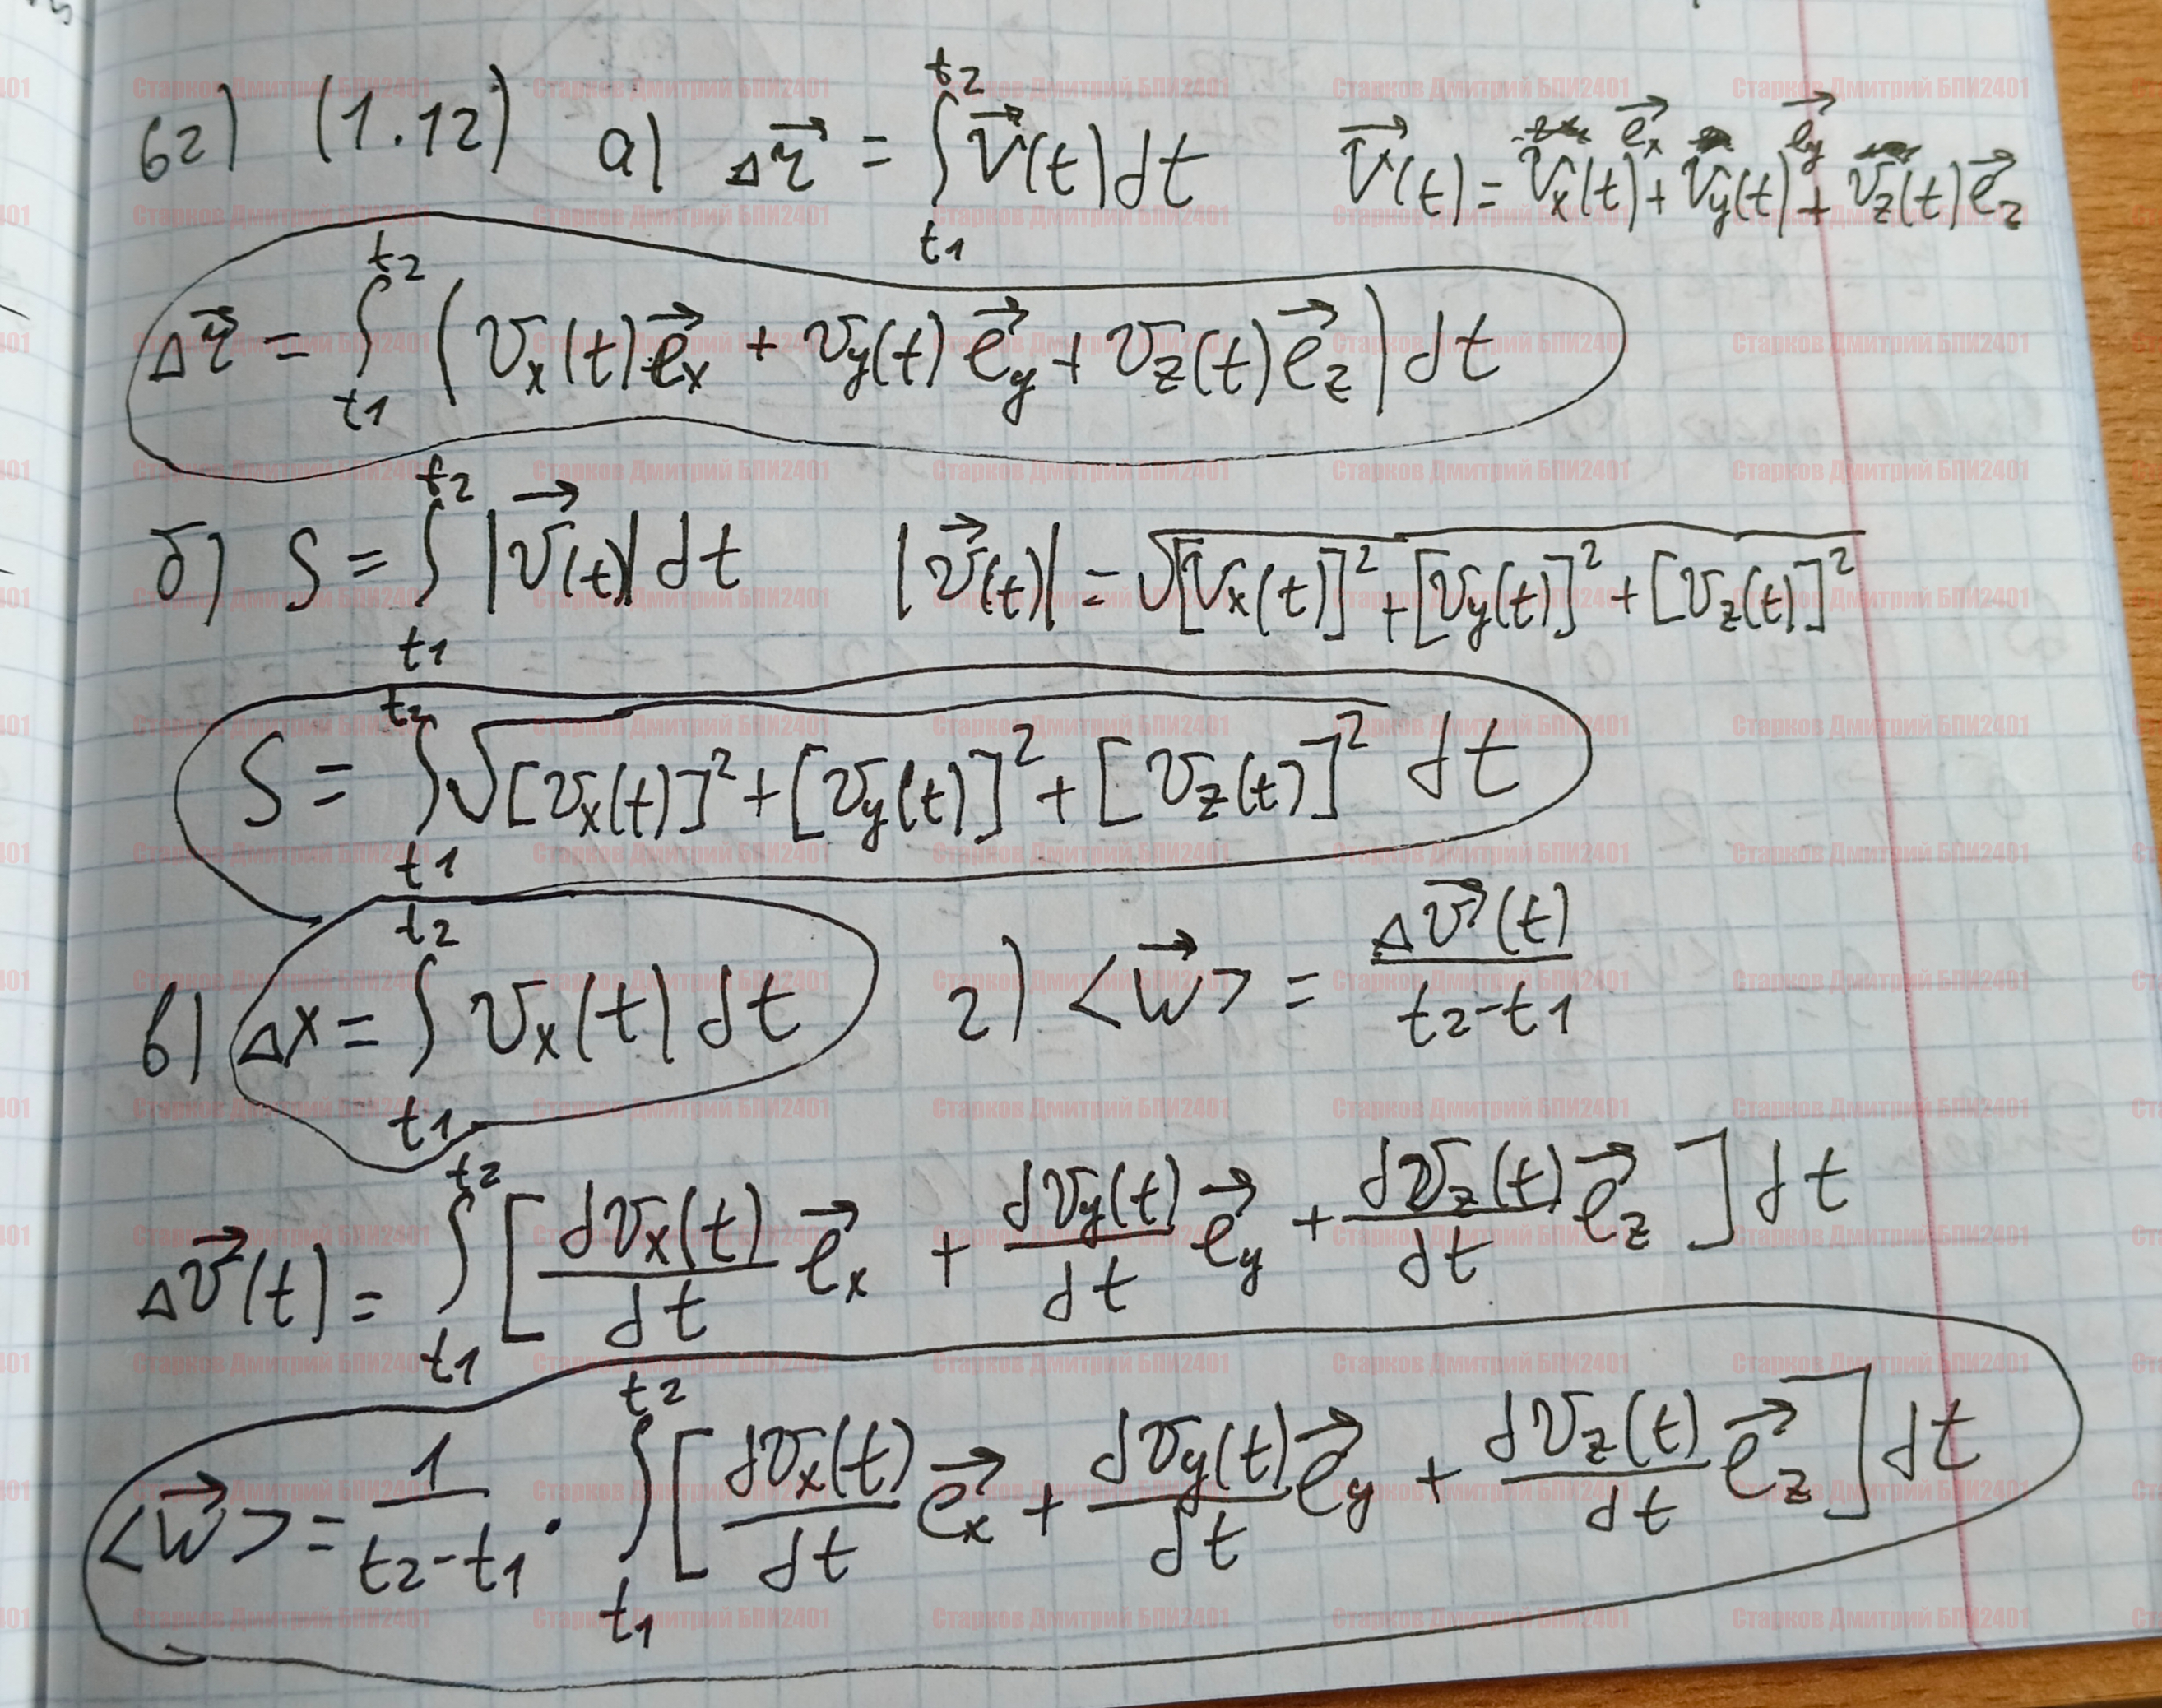 62) (1.12) а) Δr⃗ = ∫_{t1}^{t2} v⃗(t)dt v⃗(t) = vₓ(t)e⃗ₓ + v_y(t)e⃗_y + v_z(t)e⃗_z
Δr⃗ = ∫_{t1}^{t2} (vₓ(t)e⃗ₓ + v_y(t)e⃗_y + v_z(t)e⃗_z)dt
б) S = ∫_{t1}^{t2} |v⃗(t)|dt |v⃗(t)| = √([vₓ(t)]² + [v_y(t)]² + [v_z(t)]²)
S = ∫_{t1}^{t2} √([vₓ(t)]² + [v_y(t)]² + [v_z(t)]²) dt
в) Δx = ∫_{t1}^{t2} vₓ(t)dt г) <w⃗> = Δv⃗(t)/(t2-t1)
Δv⃗(t) = ∫_{t1}^{t2} [dvₓ(t)/dt e⃗ₓ + dv_y(t)/dt e⃗_y + dv_z(t)/dt e⃗_z]dt
<w⃗> = 1/(t2-t1) · ∫_{t1}^{t2} [dvₓ(t)/dt e⃗ₓ + dv_y(t)/dt e⃗_y + dv_z(t)/dt e⃗_z]dt
Старков Дмитрий БПИ2401